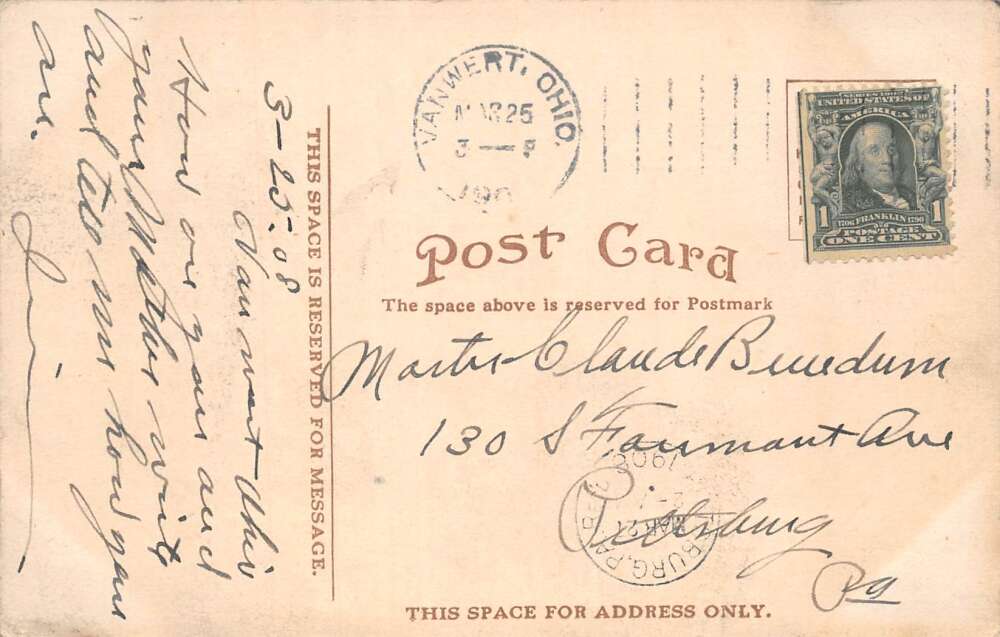 VAN WERT, OHIO.
MAR 25
3 — P
190
SERIES 1902
UNITED STATES OF
AMERICA
1706 FRANKLIN 1790
1 1
POSTAGE
ONE CENT
Post Card
The space above is reserved for Postmark
THIS SPACE IS RESERVED FOR MESSAGE.
3-25-08
Van wert Ohio
How are you and
your Mother write
and tell me how you
are.
Master Claude Benedum
130 S Fairmont Ave
Pittsburg
Pa
BURG, PA. REC'D
MAR 2
1908
THIS SPACE FOR ADDRESS ONLY.